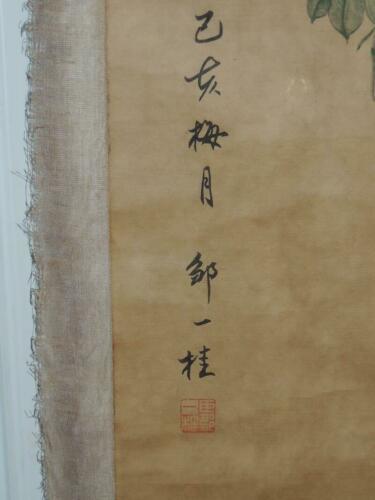 己亥梅月 邹一桂